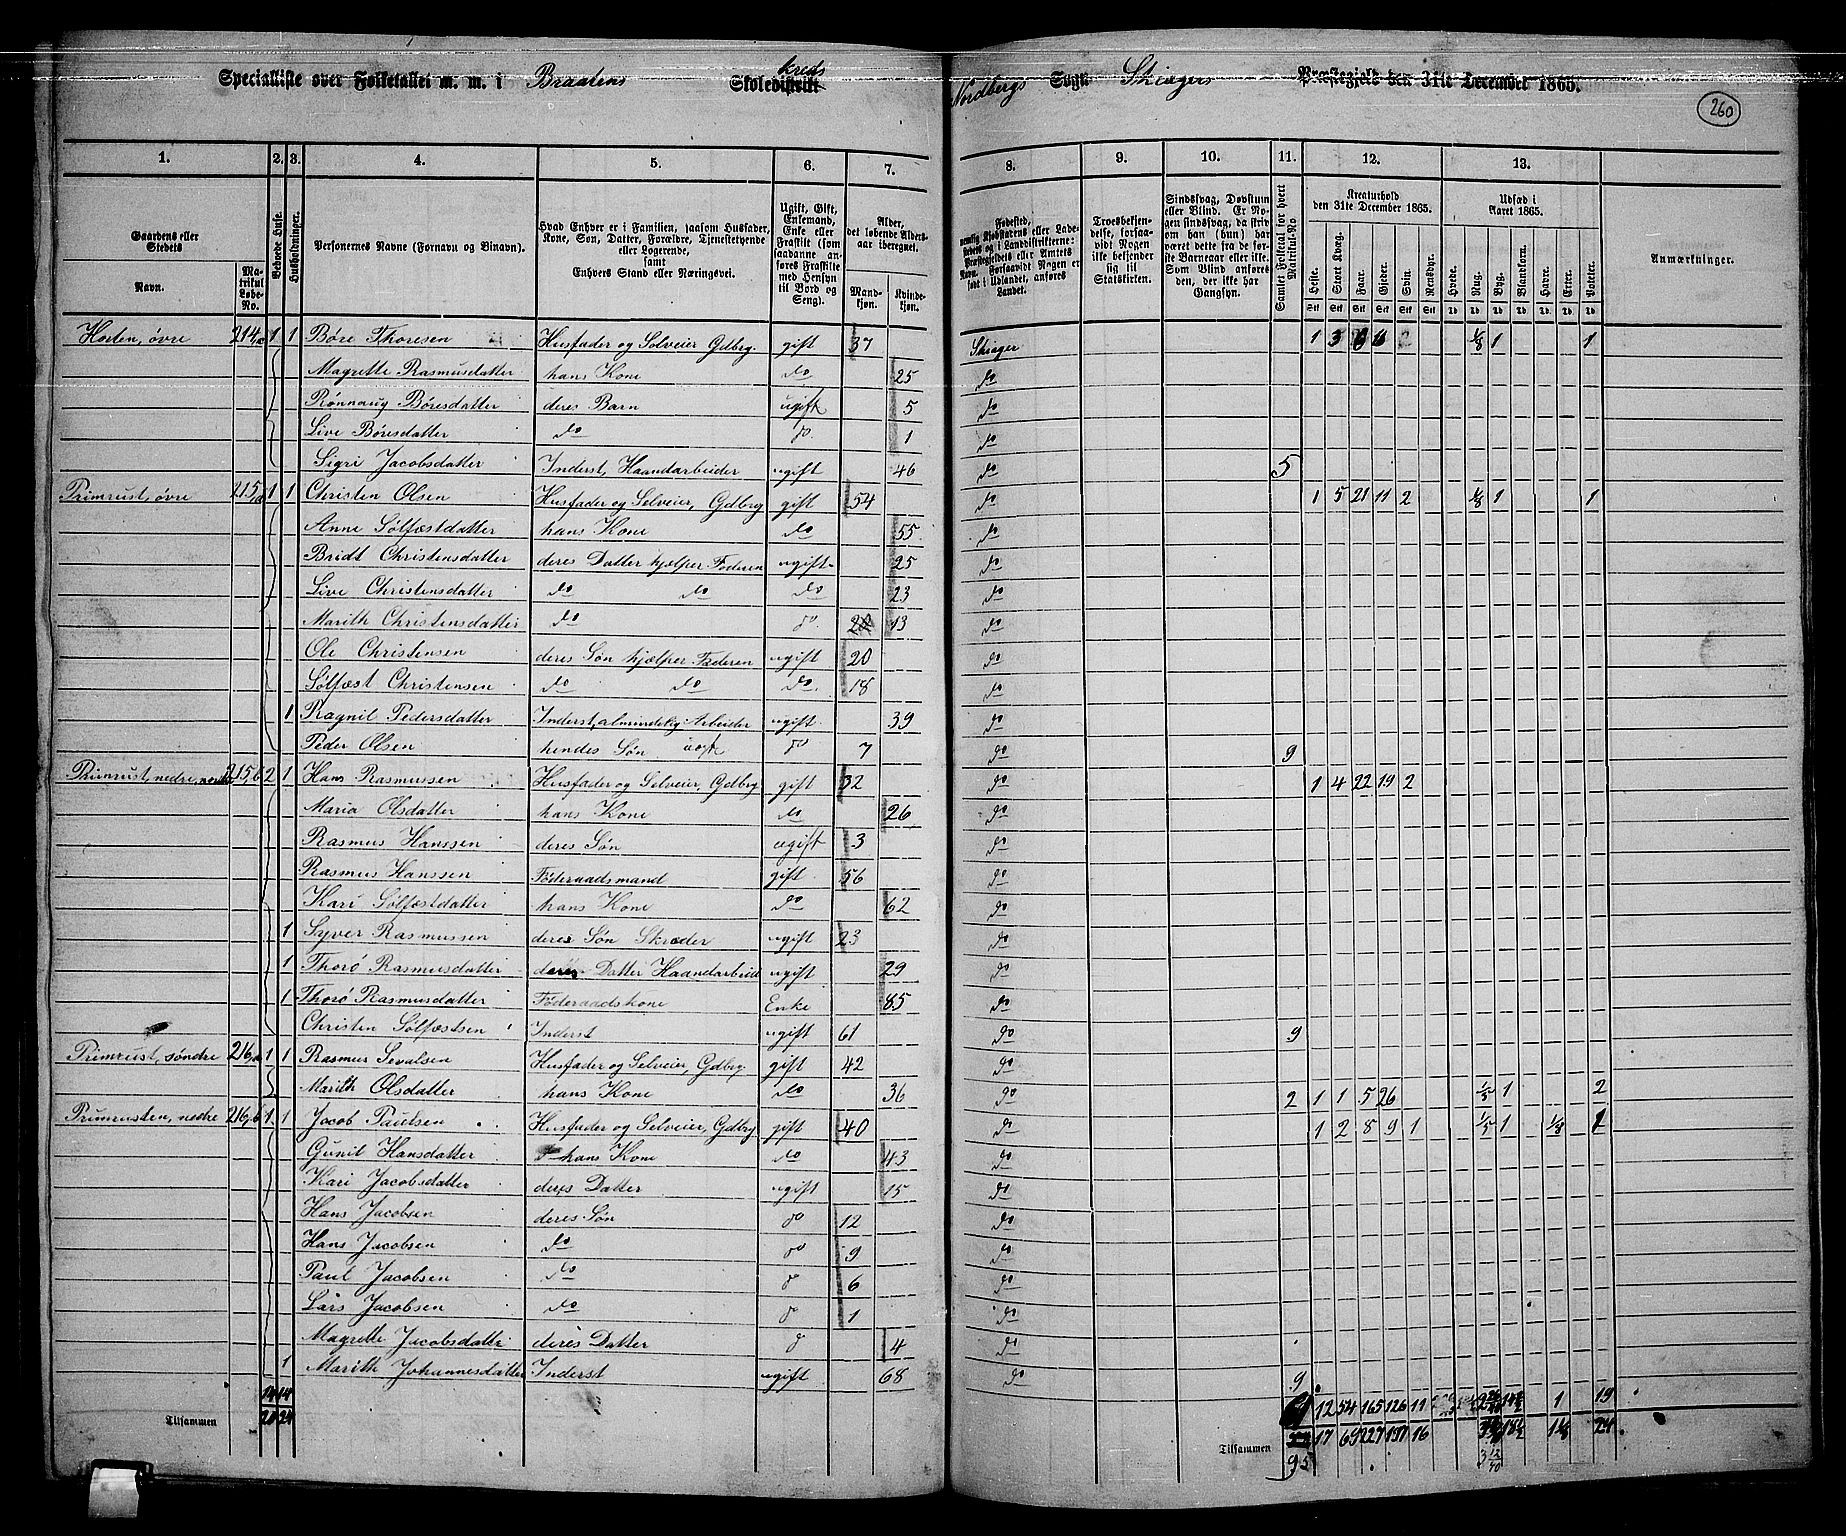 Specialliste over Folketallet m. m. i Braatens Skoledistrikt kreds Nordbergs Sogn Skiagers Præstegjeld den 31te December 1865.
260
1. 2. 3. 4. 5. 6. 7. 8. 9. 10. 11. 12. 13.
Gaardens eller Stedets
Navn.
Matrikul Løbe-No.
Beboede Huse.
Husholdninger.
Personernes Navne (Fornavn og Binavn).
Hvad Enhver er i Familien, saasom Husfader, Kone, Søn, Datter, Forældre, Tjenestetyende eller Logerende, samt Enhvers Stand eller Næringsvei.
Ugift, Gift, Enkemand, Enke eller Fraskilt (som saadanne anføres Fraskilte med Hensyn til Bord og Seng).
Alder, det løbende Alders-aar iberegnet.
Mand-kjøn. Kvinde-kjøn.
Fødested,
Troesbekjendelse, forsaavidt Nogen ikke bekjender sig til Statskirken.
Sindssvag, Døvstum eller Blind. Er Nogen sindssvag, da skriv om han (hun) har været dette fra de første Barneaar eller ikke. Som Blind anføres den, der ikke har Gangsyn.
Samlet Folketal for hvert Matrikul-No
Kreaturhold den 31te December 1865.
Heste. Stort Kvæg. Faar. Gjeder. Svin. Rensdyr.
Udsæd i Aaret 1865.
Hvede. Rug. Byg. Blandkorn. Havre. Erter. Poteter.
Anmærkninger.
Horten, øvre 214,a 1 1 Børe Thoresen Husfader og Selveier Gdbrg. gift 37 Skiager 1 3 6 6 2 1/8 1 1
Magrette Rasmusdatter hans Kone do 25 do
Rønnaug Børesdatter deres Barn ugift 5 do
Live Børesdatter do do 1 do
Sigri Jacobsdatter Inderst, Haandarbeider ugift 46 do 5
Primrust, øvre 215,a 1 1 Christen Olsen Husfader og Selveier, Gdbrg gift 54 do 1 5 21 11 2 1/8 1 1
Anne Sølfæstdatter hans Kone do 55 do
Bridt Christensdatter deres Datter hjelper Faderen ugift 25 do
Live Christensdatter do do do 23 do
Marith Christensdatter do do 20 13 do
Ole Christensen deres Søn hjælper Faderen ugift 20 do
Sølfæst Christensen do do do 18 do
1 Ragnil Pedersdatter Inderst, almindelig Arbeider ugift 39 do
Peder Olsen hendes Søn uægte do 7 do 9
Primrust, nedre, nordre 215,b 2 1 Hans Rasmussen Husfader og Selveier, Gdbrg gift 32 do 1 4 22 19 2
Maria Olsdatter hans Kone do 26 do
Rasmus Hanssen deres Søn ugift 3 do
Rasmus Hanssen Føderaadsmand gift 56 do
Kari Sølfæstdatter hans Kone do 62 do
1 Syver Rasmussen deres Søn Skræder ugift 23 do
1 Thorø Rasmusdatter deres Datter Haandarbeid ugift 29 do
1 Thorø Rasmusdatter Føderaadskone Enke 85 do
Christen Sølfæstsen Inderst ugift 61 do 9
Primrust, søndre 216,a 1 1 Rasmus Sevalsen Husfader og Selveier, Gdbrg gift 42 do
Marith Olsdatter hans Kone do 36 do 2 1 1 5 26 1/5 1 2
Primrusten, nedre 216,b 1 1 Jacob Paulsen Husfader og Selveier, Gdbrg gift 40 do 1 2 8 9 1 1/5 1 1/8 1
Gunil Hansdatter hans Kone do 43 do
Kari Jacobsdatter deres Datter ugift 15 do
Hans Jacobsen deres Søn do 12 do
Hans Jacobsen do do 9 do
Paul Jacobsen do do 6 do
Lars Jacobsen do do 1 do
Magrette Jacobsdatter deres Datter do 4 do
1 Marith Johannesdatter Inderst ugift 68 do 9
14 14 12 54 165 126 11 1 19
Tilsammen 20 24 Tilsammen 17 69 227 197 16 24
95 3 12/40